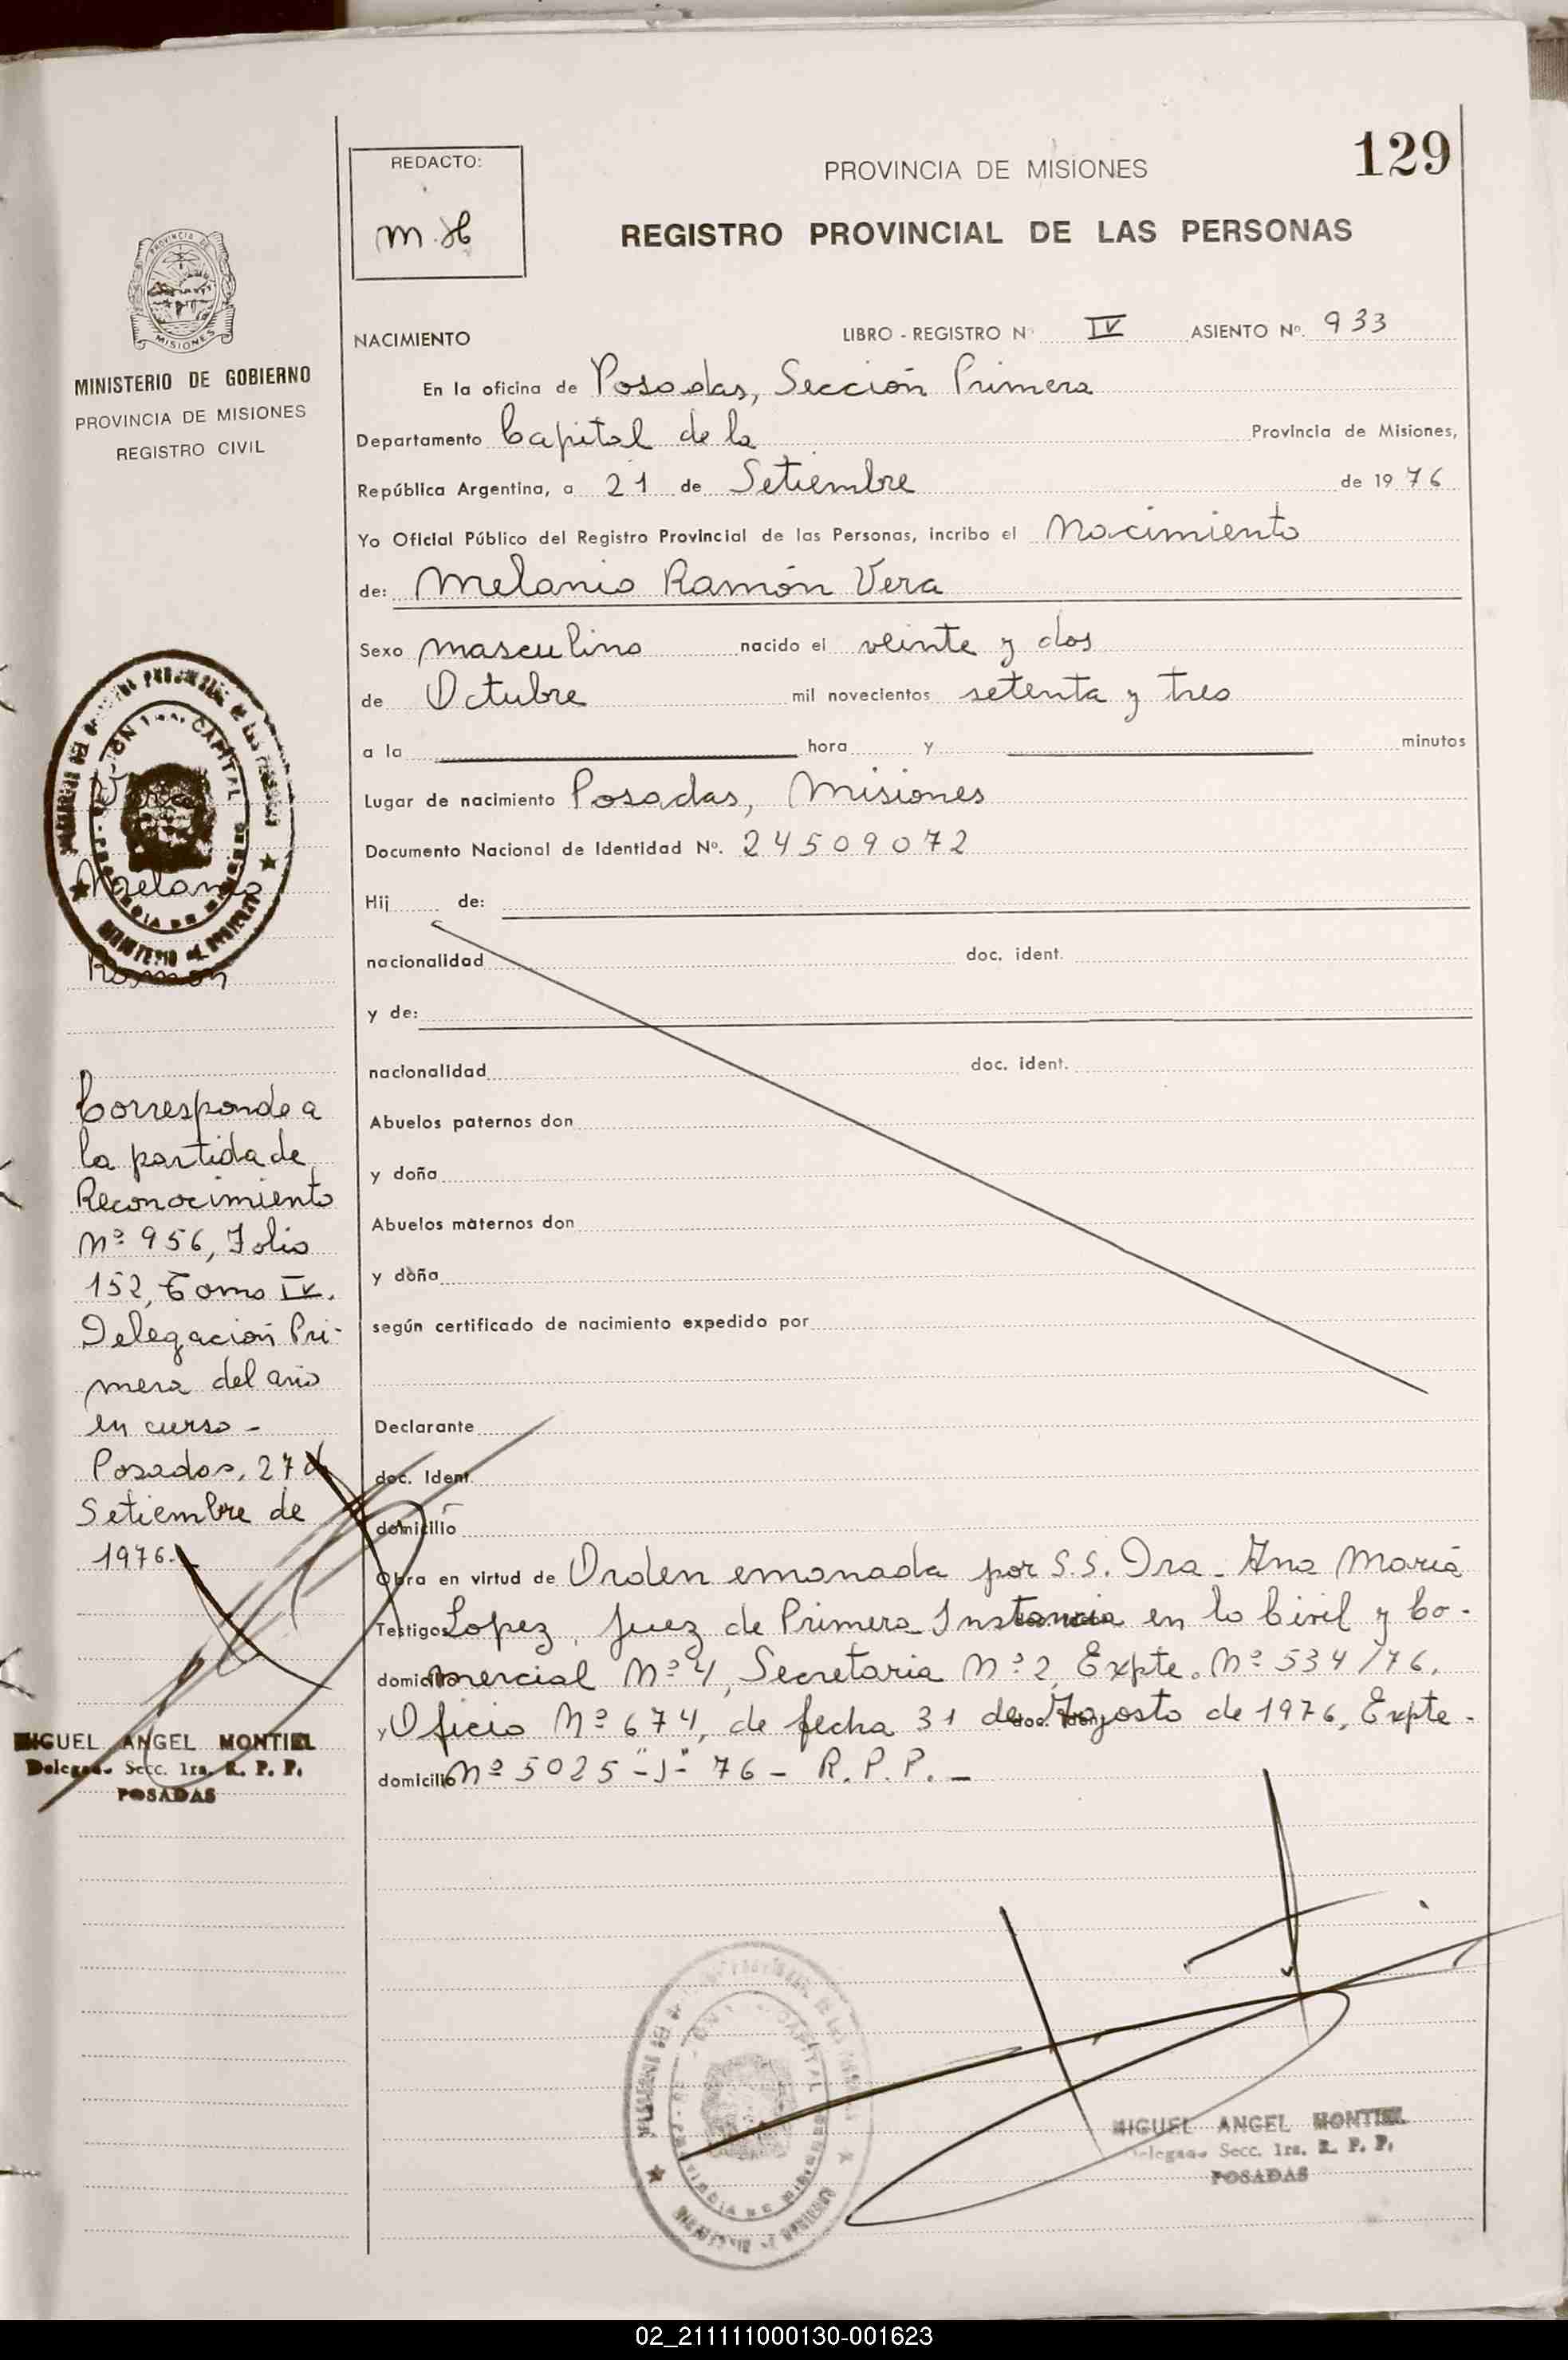 129
REDACTO:
m.H
PROVINCIA DE MISIONES
REGISTRO PROVINCIAL DE LAS PERSONAS
MISIONES
MINISTERIO DE GOBIERNO
PROVINCIA DE MISIONES
REGISTRO CIVIL
NACIMIENTO LIBRO - REGISTRO Nº IV ASIENTO Nº. 933
En la oficina de Posadas, Sección Primera
Departamento Capital de la Provincia de Misiones,
República Argentina, a 21 de Setiembre de 1976
Yo Oficial Público del Registro Provincial de las Personas, incribo el Nacimiento
de: Melanio Ramón Vera
Sexo masculino nacido el veinte y dos
de Octubre mil novecientos setenta y tres
a la hora y minutos
Lugar de nacimiento Posadas, Misiones
Documento Nacional de Identidad Nº. 24509072
Hij de:
nacionalidad doc. ident.
y de:
nacionalidad doc. ident.
Abuelos paternos don
y doña
Abuelos maternos don
y doña
según certificado de nacimiento expedido por
Declarante
doc. Ident.
domicilio
Obra en virtud de Orden emanada por S.S. Dra. Ana María
Testigos Lopez, Juez de Primera Instancia en lo Civil y Co-
domicilio mercial Nº 4, Secretaria Nº 2, Expte. Nº 534/76.
y Oficio Nº 674, de fecha 31 de Agosto de 1976, Expte.
domicilio Nº 5025-"J"-76- R.P.P.-
Vera
Melanio
Ramón
Corresponde a
la partida de
Reconocimiento
Nº 956, Folio
152, Tomo IV.
Delegación Pri-
mera del año
en curso-
Posadas, 27 de
Setiembre de
1976.-
MIGUEL ANGEL MONTIEL
Delegado Secc. 1ra. R. P. P.
POSADAS
MIGUEL ANGEL MONTIEL
Delegado Secc. 1ra. R. P. P.
POSADAS
02_211111000130-001623